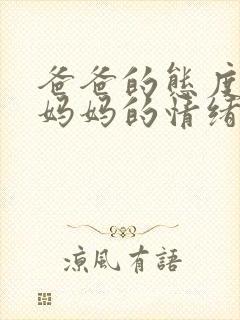 爸爸的態度
媽媽的情緒
涼風有語